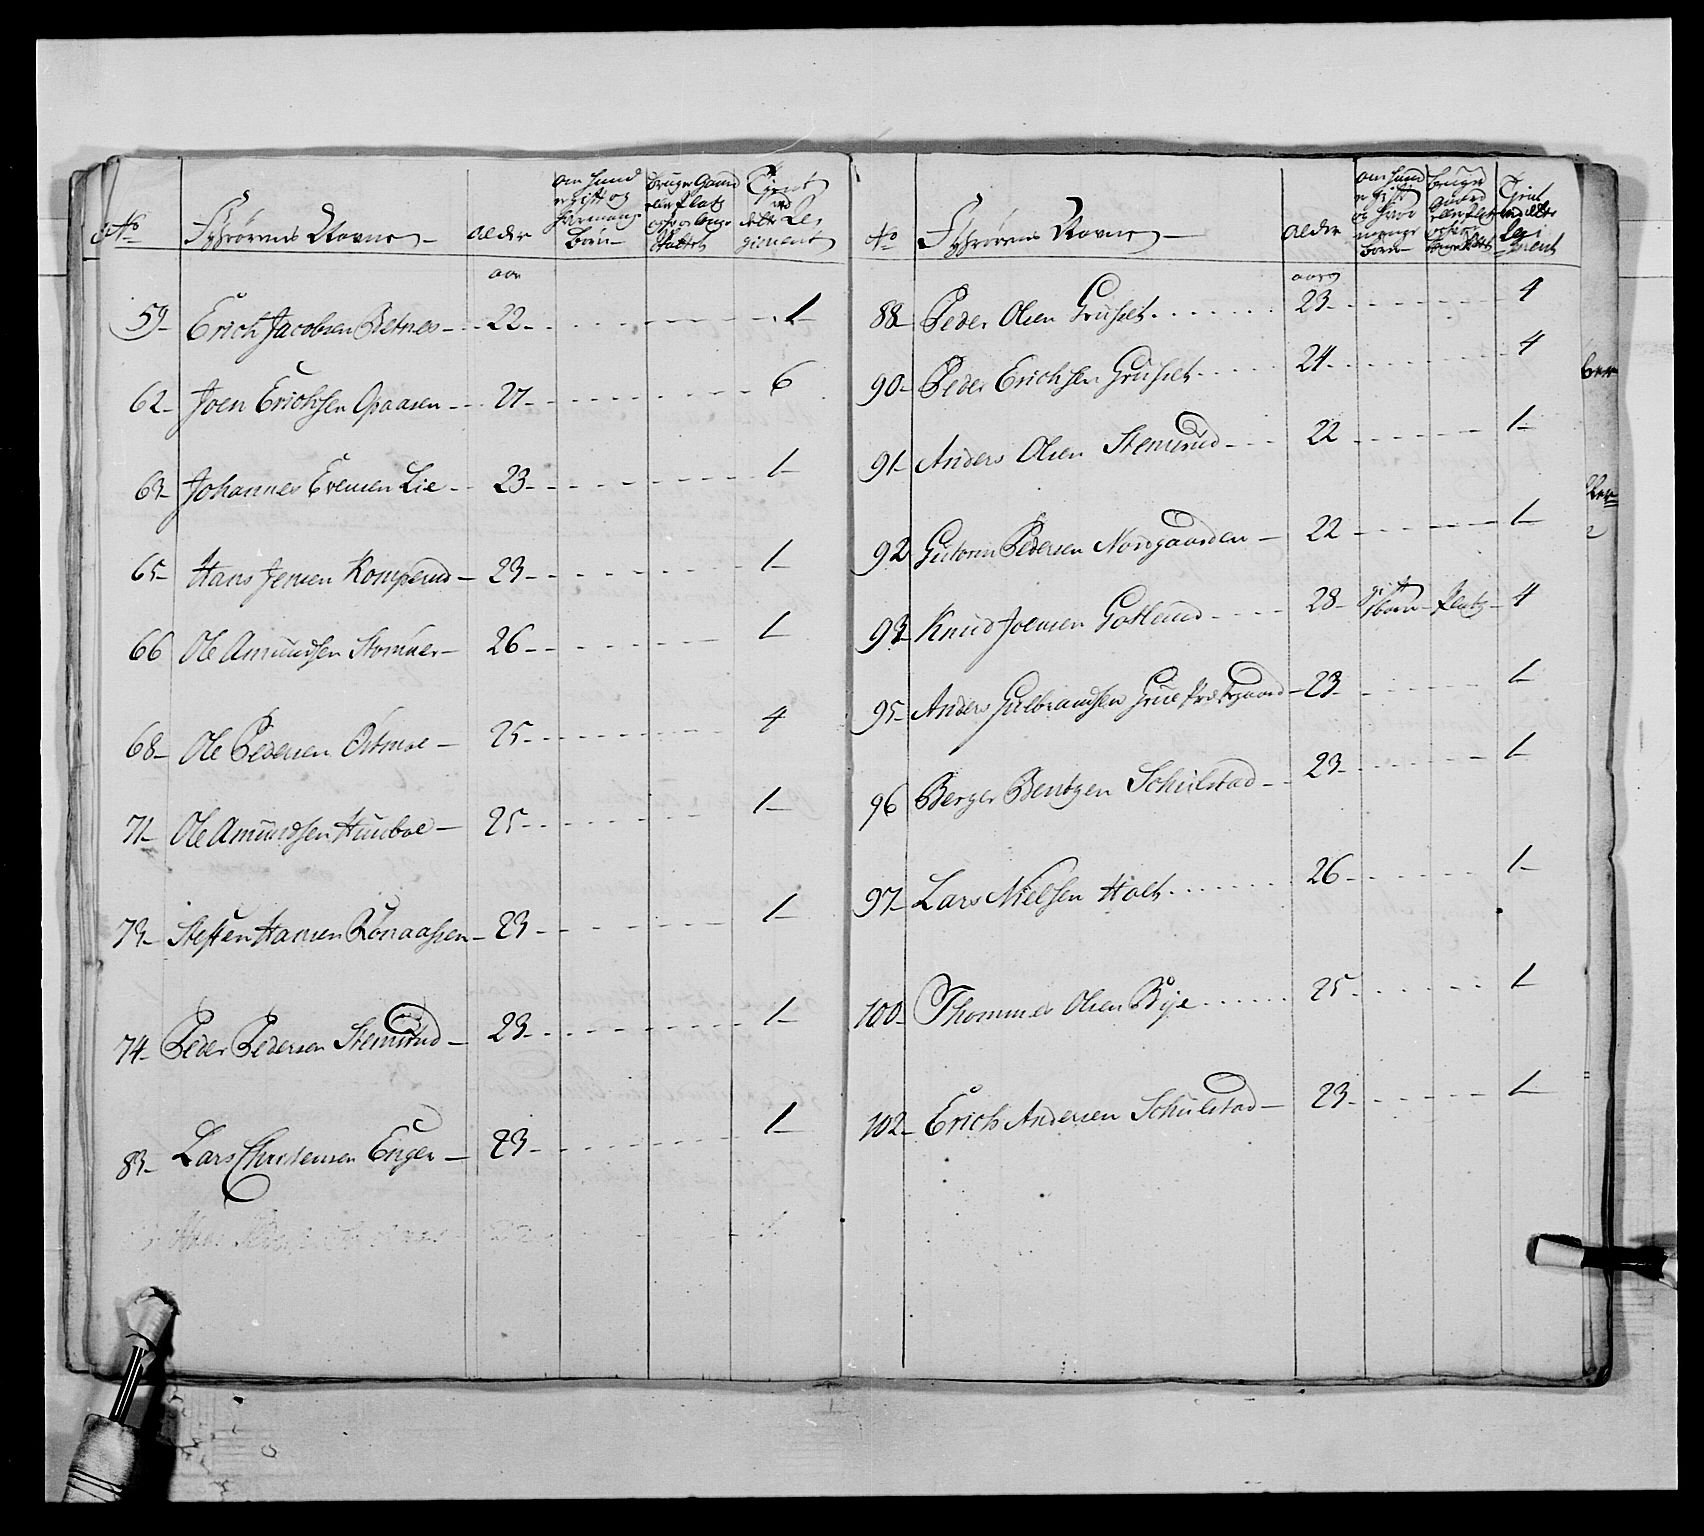 No
Fyhrørens Navne
alder
om hand
er gift og
har mange
Børn
bruger Gaard
eller Platz
Tient
ved
dette Re,
giment
aar
59 Erich Jacobsen Betnes 22 1
62 Joen Erichsen Opaasen 27 6
63 Johannes Evensen Lie 23 1
65 Hans Jensen Komperud 23 1
66 Ole Amundsen Stomner 26 1
68 Ole Pedersen Østmoe 25 4
71 Ole Amundsen Huuboe 25 1
73 Steffen Hansen Rønaassen 23 1
74 Peder Pedersen Stemsrud 23 1
83 Lars Christensen Enger 23 1
No
Fyhrørens Navne
alder
om hand
er gift
og har
mange
børn
bruger
Tient
ved dette
Regi
ment
aar
88 Peder Olsen Gruset 23 4
90 Peder Erichsen Gruset 24 4
91 Anders Olsen Stemsrud 22 1
92 Guttorm Pedersen Nordgaarden 22 1
93 Knud Joensen Gotlund 28 gift 1 barn Platz 4
95 Anders Gulbrandsen Grue Præstgaard 23 1
96 Berger Bentzen Schulstad 23 1
97 Lars Nielsen Holt 26 1
100 Thommes Olsen Bye 25 1
102 Erich Andersen Schulstad 23 1